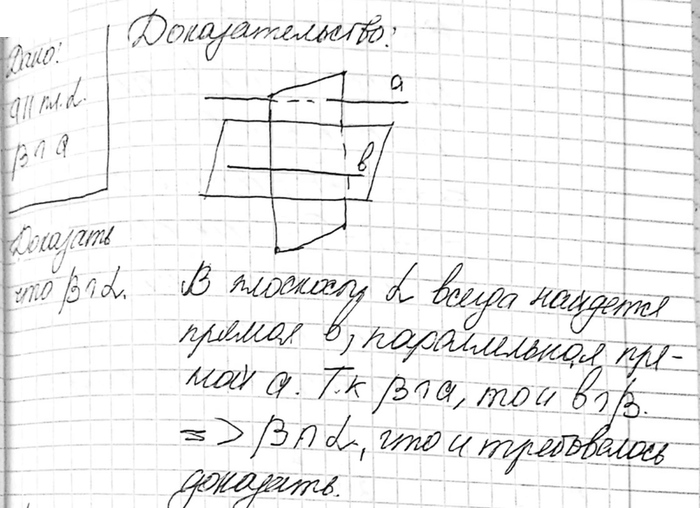 Доказательство:
Дано:
a || пл. α.
β ∩ a
a
в
Доказать
что β ∩ α.
В плоскости α всегда найдется
прямая в, параллельная пря-
мой a. Т.к β ∩ a, то и в ∩ β.
=> β ∩ α, что и требовалось
доказать.